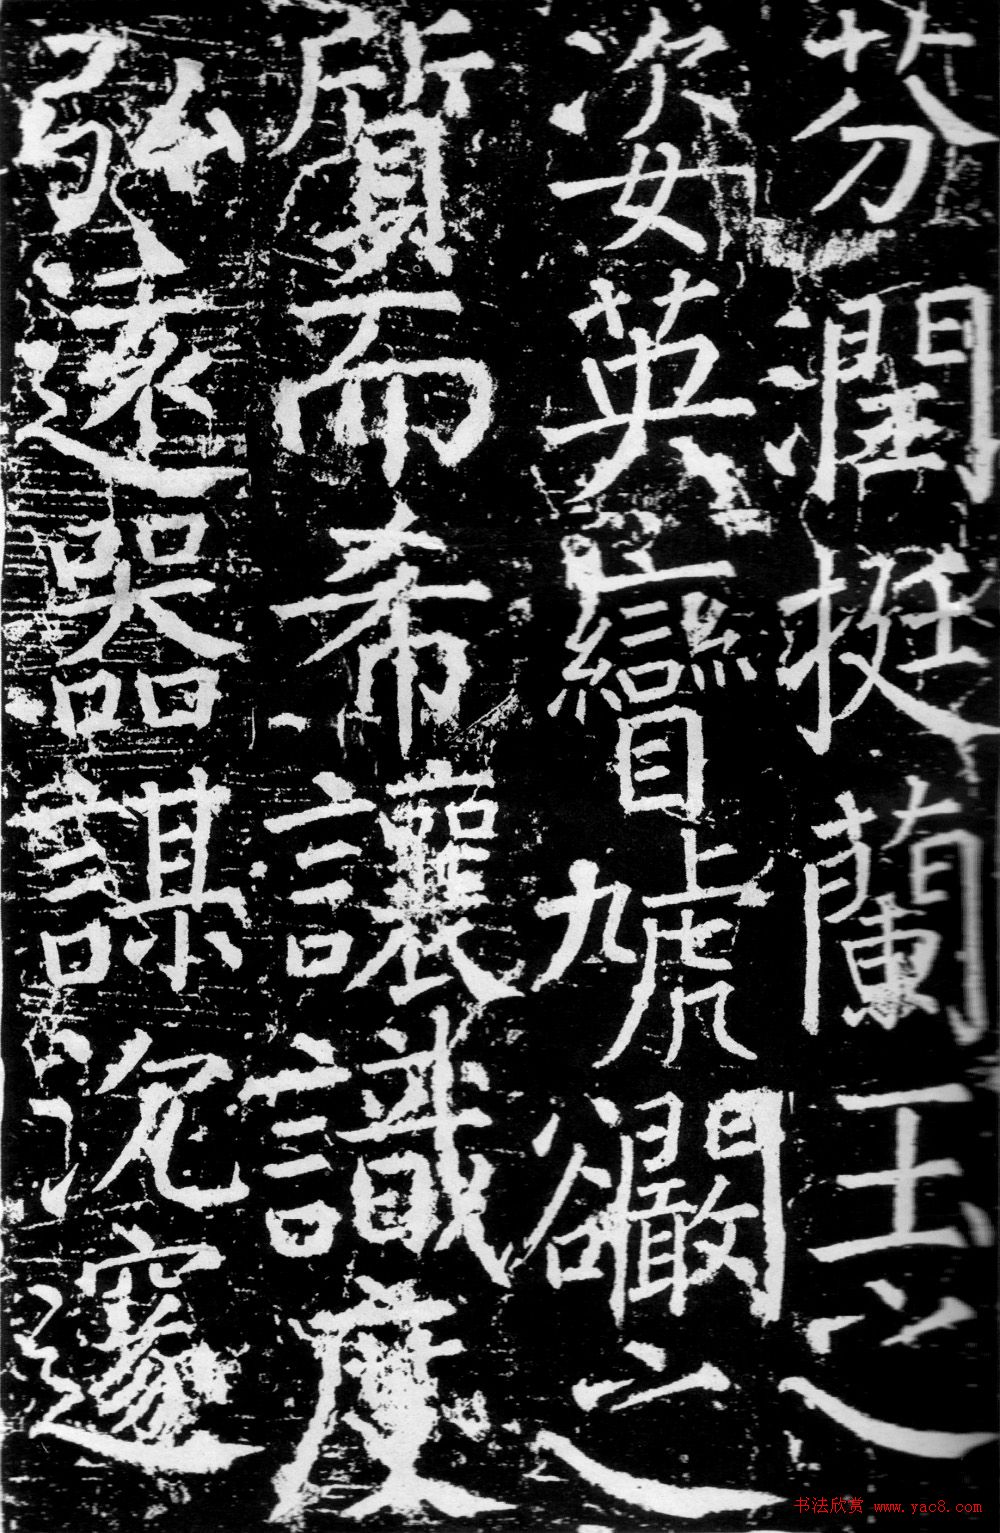 芬潤挺蘭玉之
姿英矕虓之
質而希讓識度
弘遠器謀沉邃
书法欣赏 www.yac8.com